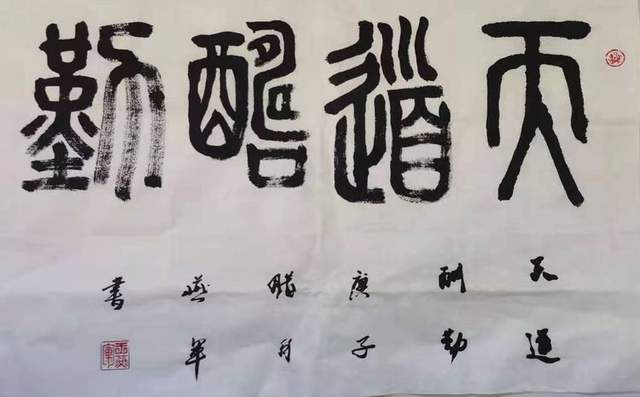 天道酬勤
天道
酬勤
庚子
腊月
燕军
書